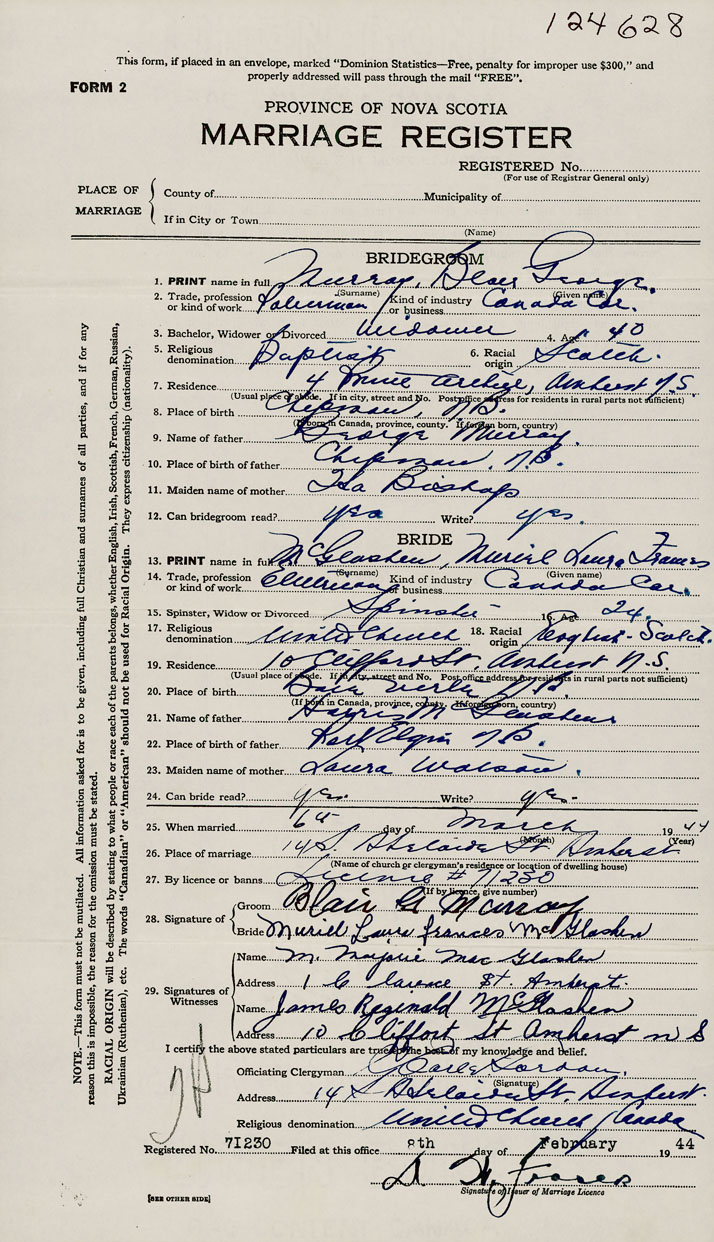 124628
This form, if placed in an envelope, marked "Dominion Statistics—Free, penalty for improper use $300," and
properly addressed will pass through the mail "FREE".
FORM 2
PROVINCE OF NOVA SCOTIA
MARRIAGE REGISTER
REGISTERED No.
(For use of Registrar General only)
PLACE OF MARRIAGE
County of Municipality of
If in City or Town
(Name)
BRIDEGROOM
1. PRINT name in full Murray, Blair George.
(Surname) (Given name)
2. Trade, profession or kind of work Kind of industry or business Canada Car.
3. Bachelor, Widower or Divorced Widower 4. Age 40
5. Religious denomination Baptist 6. Racial origin Scotch.
7. Residence 4 Amherst N.S.
(Usual place of abode. If in city, street and No. Post office address for residents in rural parts not sufficient)
8. Place of birth Chipman, N.B.
(If born in Canada, province, county. If foreign born, country)
9. Name of father George Murray.
10. Place of birth of father Chipman, N.B.
11. Maiden name of mother Ida Bishop
12. Can bridegroom read? yes Write? yes.
BRIDE
13. PRINT name in full McGlashen, Muriel Laura Frances
(Surname) (Given name)
14. Trade, profession or kind of work Kind of industry or business Canada Car.
15. Spinster, Widow or Divorced Spinster 16. Age 24.
17. Religious denomination United Church 18. Racial origin English-Scotch.
19. Residence 10 Clifford St. Amherst N.S.
(Usual place of abode. If in city, street and No. Post office address for residents in rural parts not sufficient)
20. Place of birth Baie Verte N.B.
(If born in Canada, province, county. If foreign born, country)
21. Name of father Harris McGlashen
22. Place of birth of father Port Elgin N.B.
23. Maiden name of mother Laura Watson.
24. Can bride read? yes. Write? yes.
25. When married 6th day of March 1944
(Month) (Year)
26. Place of marriage 14 S. Adelaide St. Amherst
(Name of church or clergyman's residence or location of dwelling house)
27. By licence or banns License # 71230
(If by licence, give number)
28. Signature of
Groom Blair G Murray
Bride Muriel Laura Frances McGlashen
29. Signatures of Witnesses
Name M. Marjorie MacGlashen
Address 1 Clarence St. Amherst.
Name James Reginald McGlashen
Address 10 Cliffort St Amherst N S
I certify the above stated particulars are true to the best of my knowledge and belief.
Officiating Clergyman Gordon.
(Signature)
Address 14 S Adelaide St. Amherst.
Religious denomination United Church Canada
Registered No. 71230 Filed at this office 8th day of February 1944
Fraser
Signature of Issuer of Marriage Licence
[SEE OTHER SIDE]
NOTE.—This form must not be mutilated. All information asked for is to be given, including full Christian and surnames of all parties, and if for any
reason this is impossible, the reason for the omission must be stated.
RACIAL ORIGIN will be described by stating to what people or race each of the parents belongs, whether English, Irish, Scottish, French, German, Russian,
Ukrainian (Ruthenian), etc. The words "Canadian" or "American" should not be used for Racial Origin. They express citizenship (nationality).